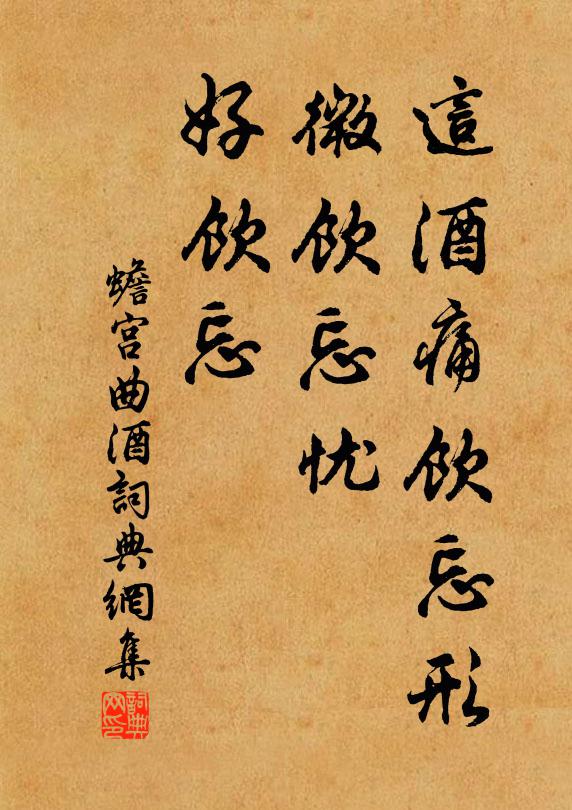 這酒痛飲忘形
微飲忘忧
好飲忘
蟾宮曲酒詞典網集
詞典網印